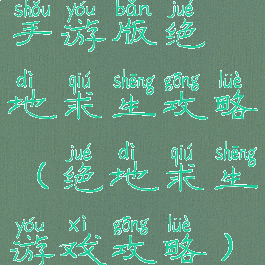 shǒu yóu bǎn jué
手游版绝
dì qiú shēng gōng lüè
地求生攻略
jué dì qiú shēng
(绝地求生
yóu xì gōng lüè
游戏攻略)